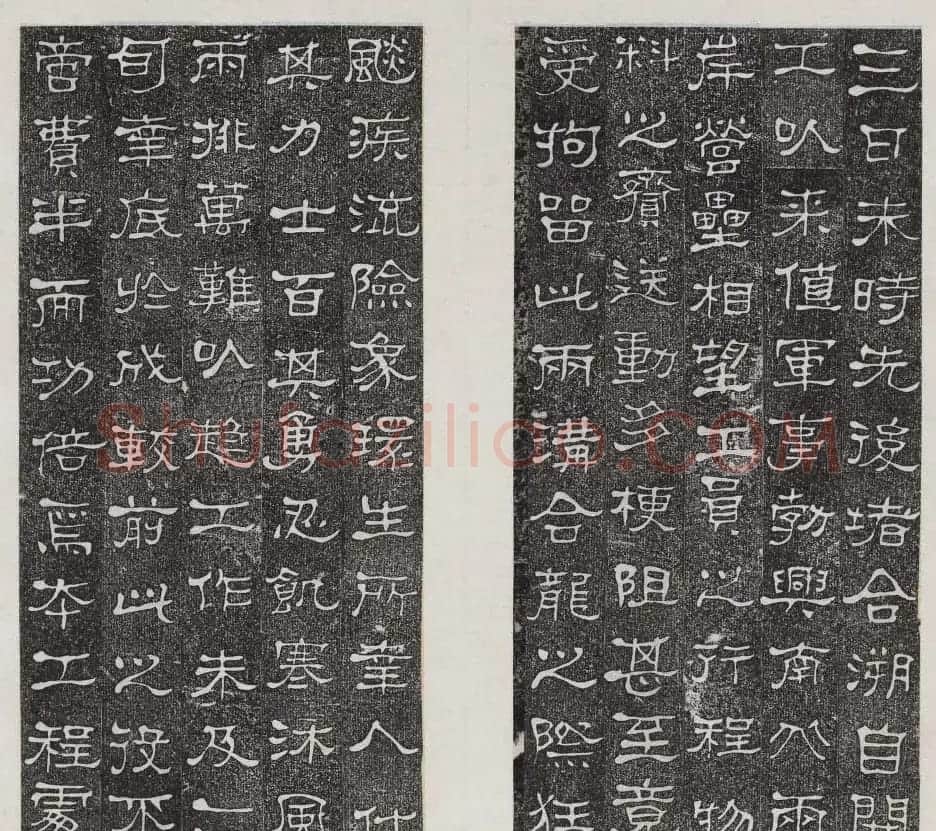 三日未時先後堵合溯自開
工以来值軍事勃興南北兩
岸營壘相望工員之行程物
料之賫送動多梗阻甚至竟
受拘留此兩溝合龍之際狂
飈疾流險象環生所幸人仕
其力士百其勇忍飢寒沐風
雨排萬難以搶工作未及一
旬幸底於成較前此之役不
啻費半而功倍焉本工程處
Shufaziliao.COM